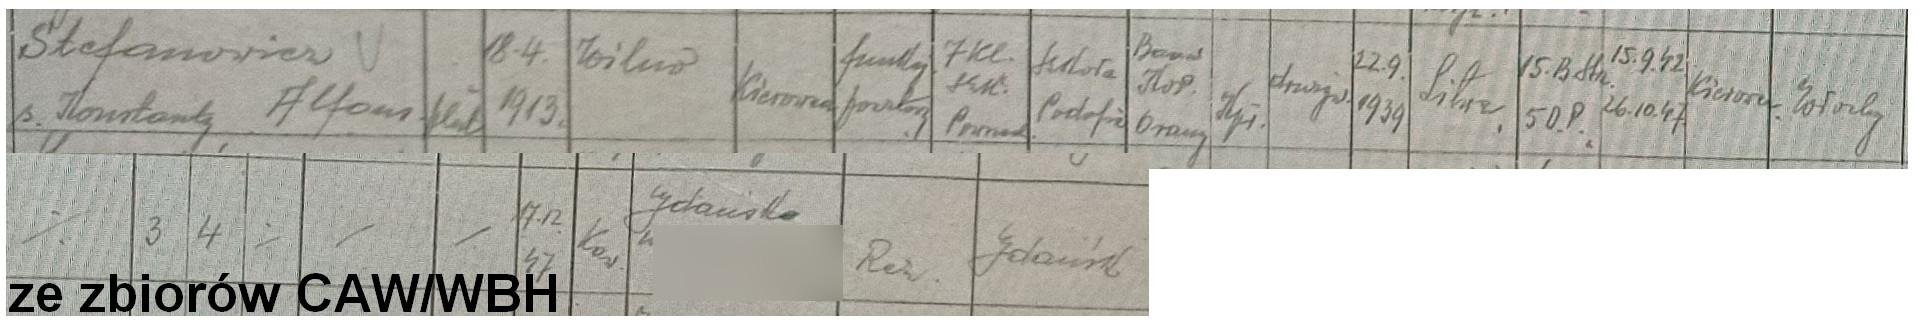 Stefanowicz V
s. Konstanty Alfons plut
18.4.
1913.
Wilno
Kierowca
funkcj.
7 Kl.
Szk.
Powsz.
Szkoła
Podofic
Baon
KOP.
Orany
22.9.
1939
Litwa
15.B.Str.
5 D.P.
15.9.42
26.10.47
Kierow.
Włochy
3
4
17.12.
47
Kaw.
Gdańsk
Rez.
Gdańsk
ze zbiorów CAW/WBH